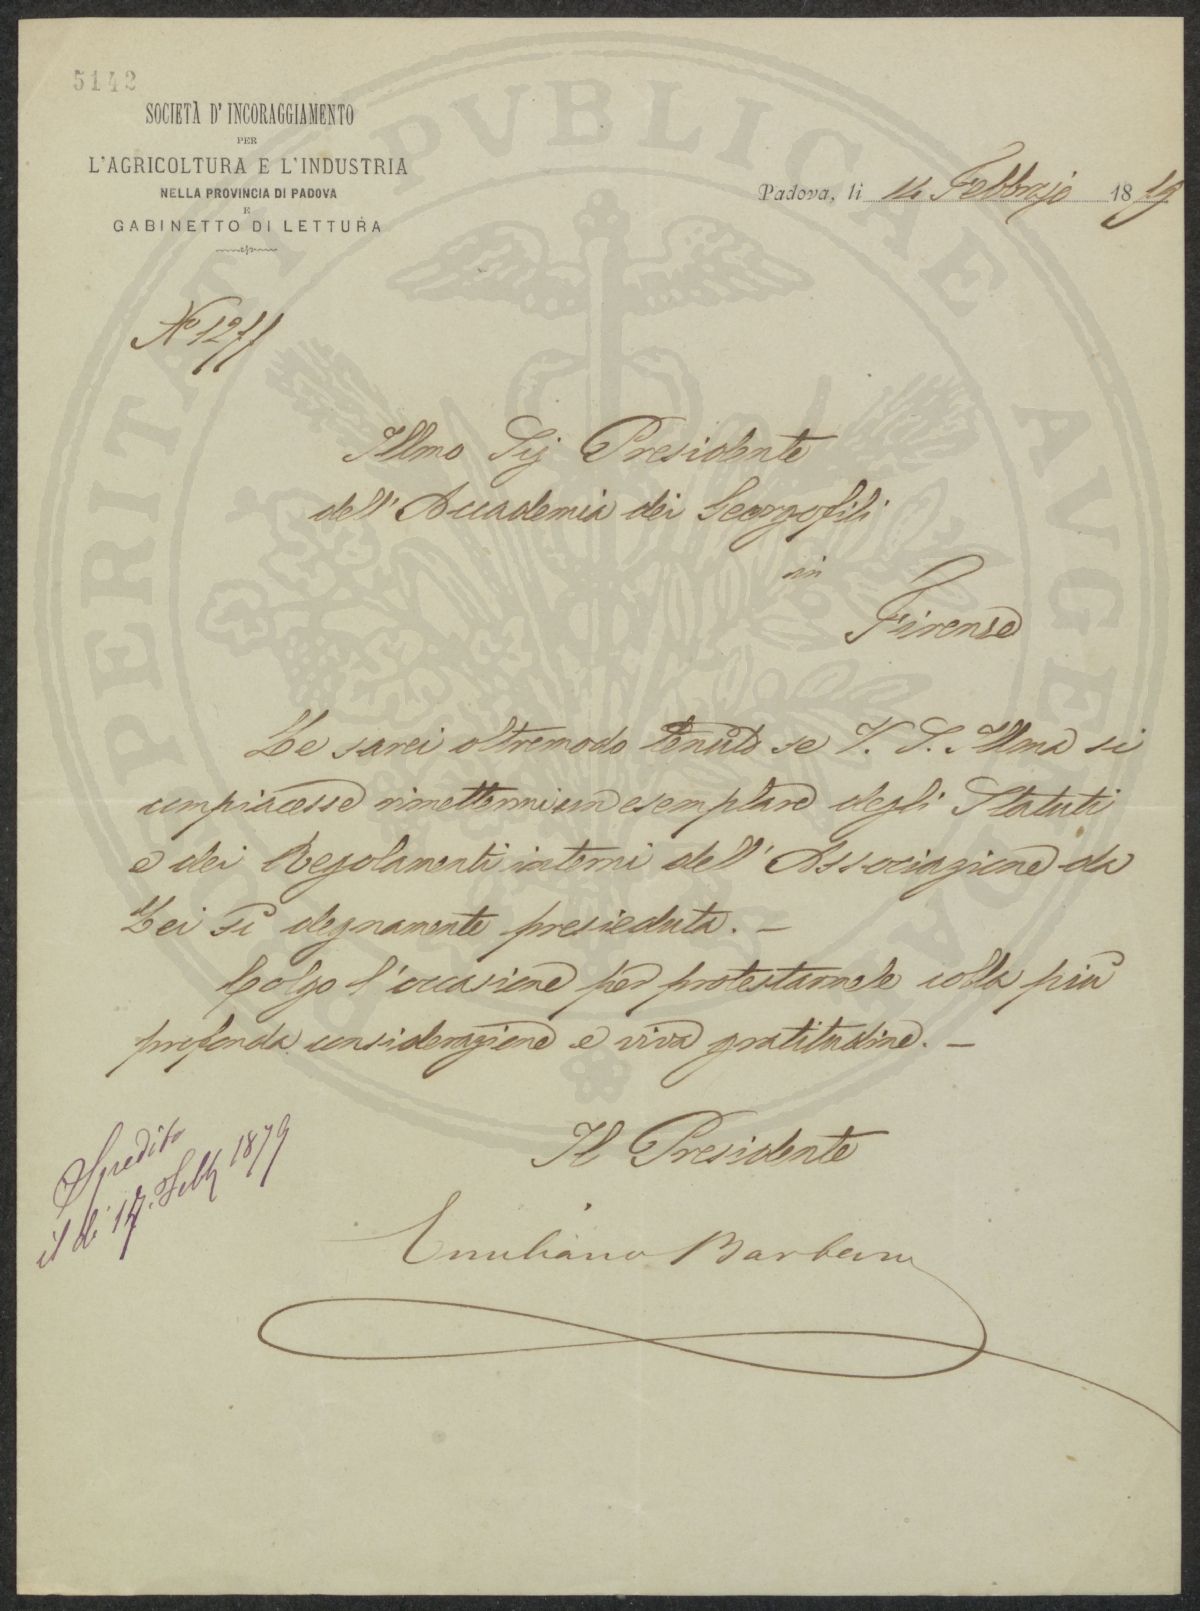 5142
SOCIETÀ D' INCORAGGIAMENTO
PER
L'AGRICOLTURA E L'INDUSTRIA
NELLA PROVINCIA DI PADOVA
E
GABINETTO DI LETTURA
Padova, li 14 Febbrajo 1879
Illmo Sig Presidente
dell' Accademia dei Georgofili
in
Firenze
Le sarei oltremodo tenuto se V. S. Illma si
compiacesse rimettermi un esemplare degli Statuti
e dei Regolamenti interni dell' Associazione da
Lei sì degnamente presieduta. —
Colgo l'occasione per protestarmele colla più
profonda considerazione e viva gratitudine. —
Il Presidente
Emiliano Barbaro
Spedito
il dì 17. Febb 1879
PROSPERITATI PVBLICAE AVGENDAE